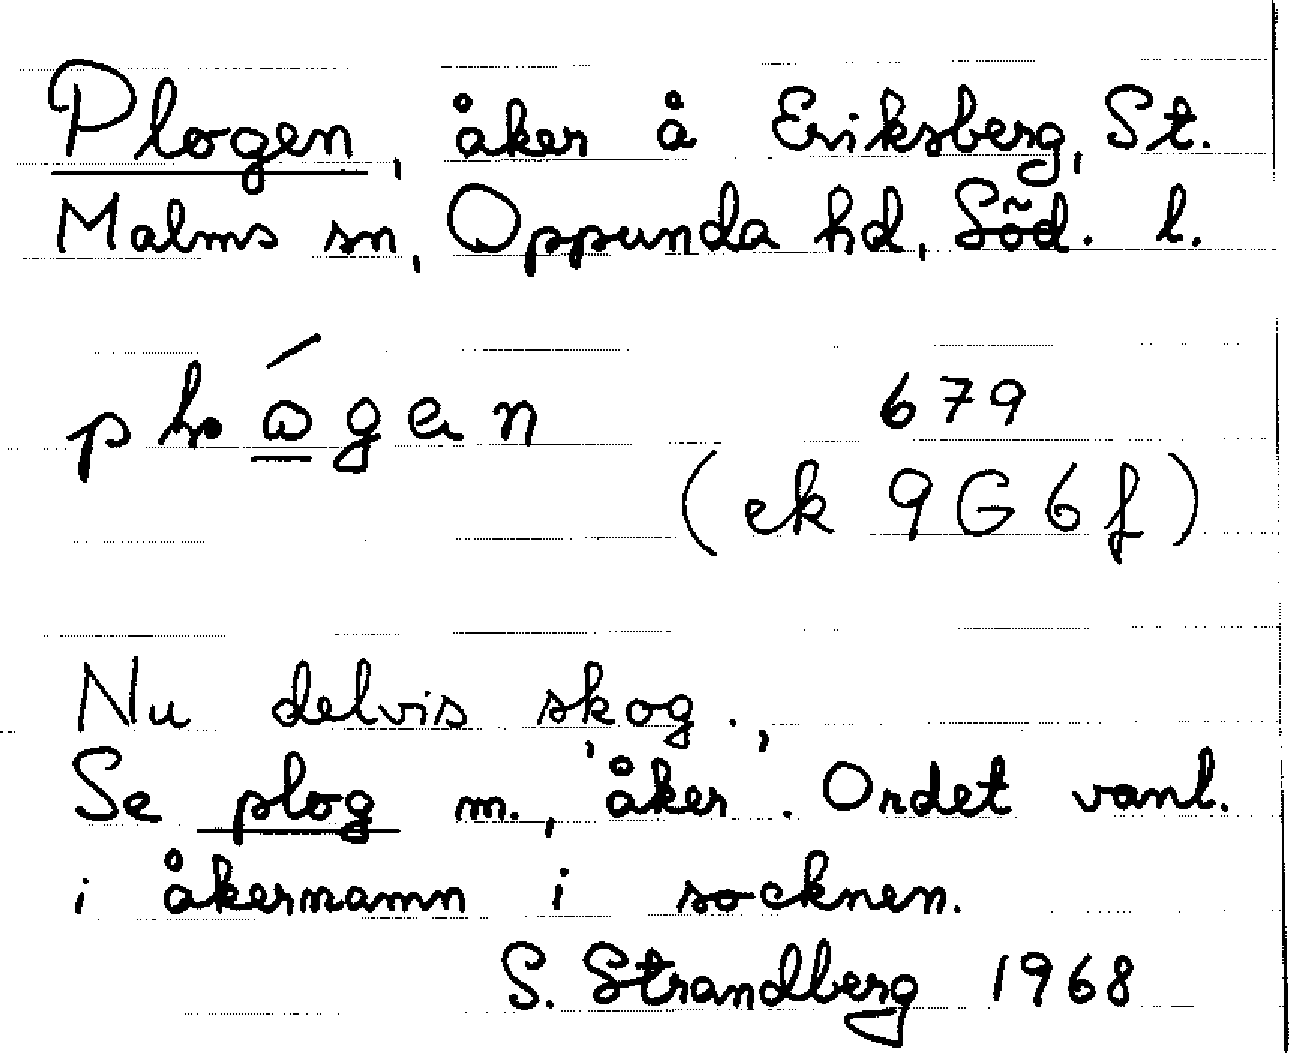 Plogen, åker å Eriksberg, St.
Malms sn, Oppunda hd, Söd. l.
679
(ek 9G6f)
Nu delvis skog.
Se plog m., 'åker'. Ordet vanl.
i åkernamn i socknen.
S. Strandberg 1968